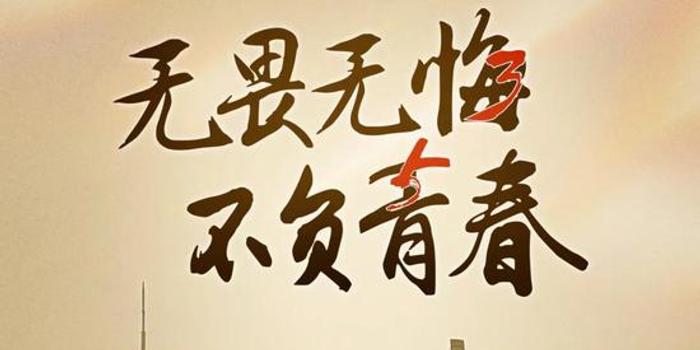 无畏无悔
不负青春